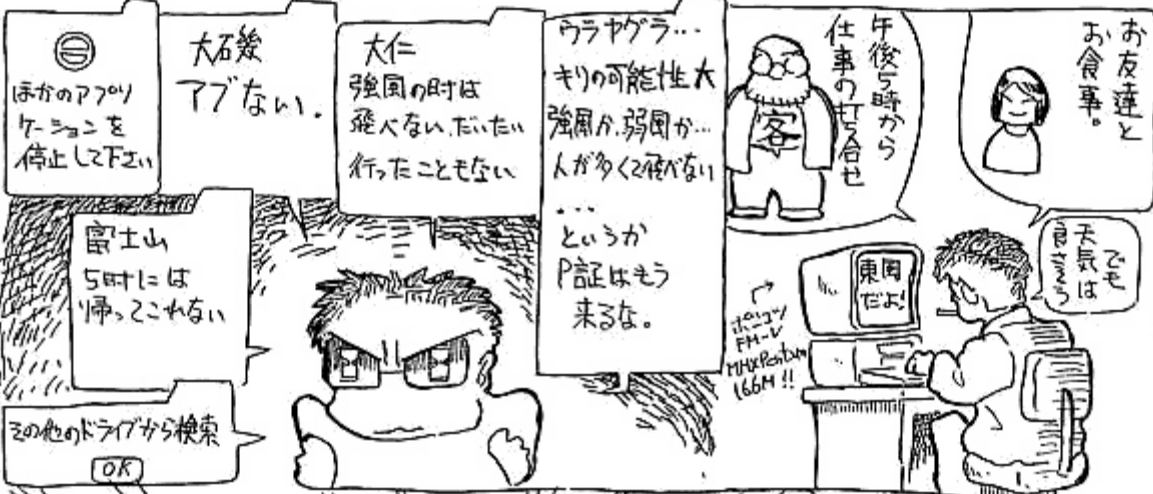 お友達と
お食事。
午後5時から
仕事の打ち合せ
客
でも
天気は
良さそう
東風
だよ!
ポンコツ
FM-V
MMXPentium
166M!!
ウラヤグラ…
キリの可能性大
強風か、弱風か…
人が多くて飛べない
…
というか
P証はもう
来るな。
大仁
強風の時は
飛べない。だいたい
行ったこともない
大石
アブない.
ほかのアプリ
ケーションを
停止して下さい
富士山
5時には
帰ってこれない
その他のドライブから検索
OK